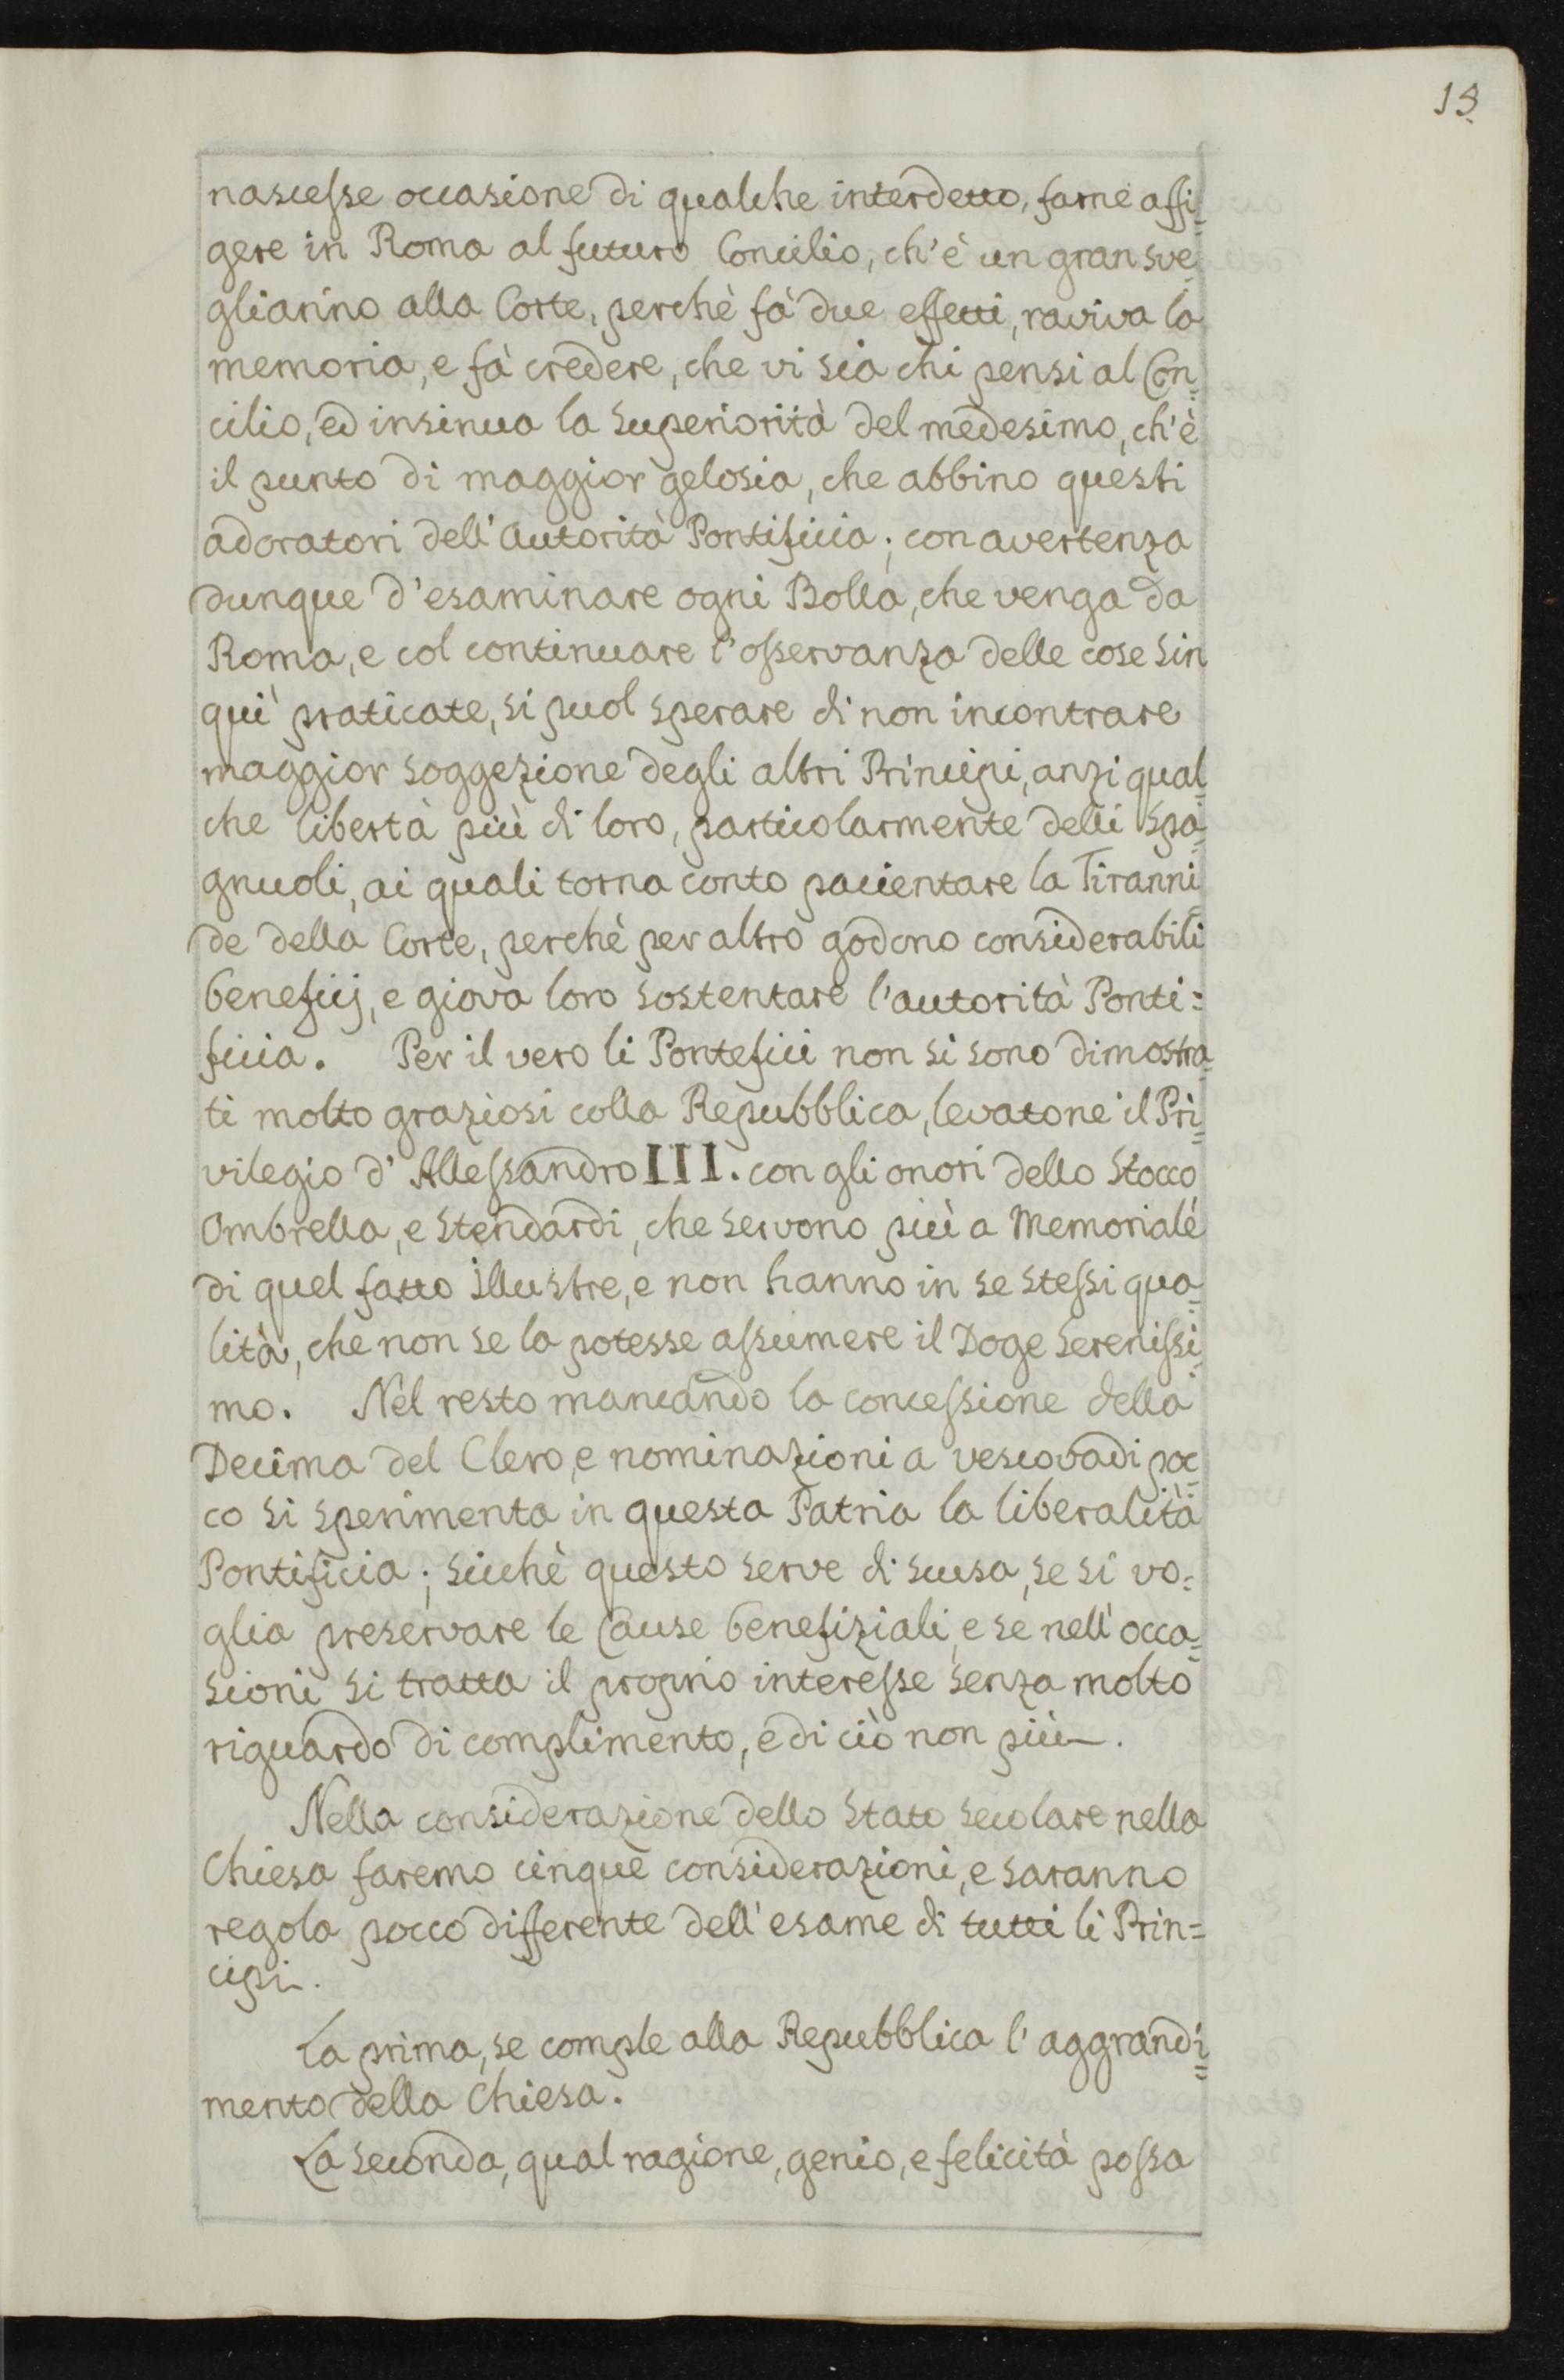 19
nascesse occasione di qualche interdetto, farne affi=
gere in Roma al futuro Concilio, ch'è un gran sve=
gliarino alla Corte, perchè fà due effetti, raviva la
memoria, e fà credere, che vi sia chi pensi al Con=
cilio, ed insinua la Superiorità del medesimo, ch'è
il punto di maggior gelosia, che abbino questi
adoratori dell'Autorità Pontificia; con avertenza
dunque d'esaminare ogni Bolla, che venga da
Roma, e col continuare l'osservanza delle cose sin
quì praticate, si puol sperare di non incontrare
maggior soggezione degli altri Principi, anzi qual=
che libertà più di loro, particolarmente delli Spa=
gnuoli, ai quali torna conto pacientare la Tiranni=
de della Corte, perchè per altro godono considerabili
beneficij, e giova loro sostentare l'autorità Ponti=
ficia. Per il vero li Pontefici non si sono dimostra=
ti molto graziosi colla Repubblica, levatone il Pri=
vilegio d'Allessandro III. con gli onori dello Stocco
Ombrella, e Stendardi, che servono più a Memoriale
di quel fatto illustre, e non hanno in se stessi qua=
lità, che non se la potesse assumere il Doge Serenissi=
mo. Nel resto mancando la concessione della
Decima del Clero, e nominazioni a vescovadi poc=
co si sperimenta in questa Patria la liberalità
Pontificia; sicchè questo serve di scusa, se si vo=
glia preservare le Cause benefiziali, e se nell'occa=
sioni si tratta il proprio interesse senza molto
riguardo di complimento, e di ciò non più.
Nella considerazione dello Stato Secolare nella
Chiesa faremo cinque considerazioni, e saranno
regola pocco differente dell'esame di tutti li Prin=
cipi.
La prima, se comple alla Repubblica l'aggrandi=
mento della Chiesa.
La seconda, qual ragione, genio, e felicità possa